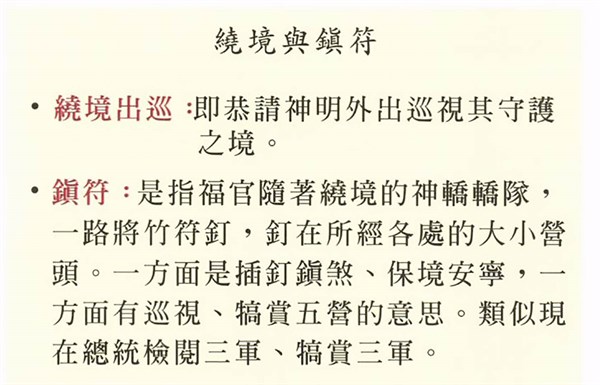 繞境與鎭符
• 繞境出巡：即恭請神明外出巡視其守護
之境。
• 鎭符：是指福官隨著繞境的神轎轎隊，
一路將竹符釘，釘在所經各處的大小營
頭。一方面是插釘鎭煞、保境安寧，一
方面有巡視、犒賞五營的意思。類似現
在總統檢閱三軍、犒賞三軍。